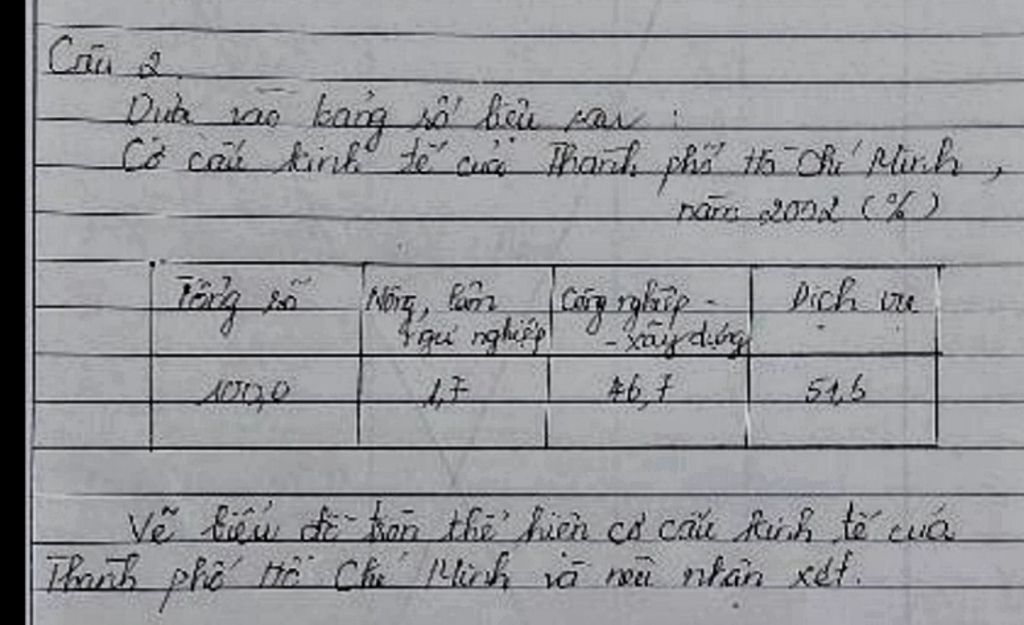 Câu 2.
Dựa vào bảng số liệu sau :
Cơ cấu kinh tế của Thành phố Hồ Chí Minh,
năm 2002 (%)
Tổng số Nông, lâm Công nghiệp - Dịch vụ
ngư nghiệp - xây dựng
100,0 1,7 46,7 51,6
Vẽ biểu đồ tròn thể hiện cơ cấu kinh tế của
Thành phố Hồ Chí Minh và nêu nhận xét.